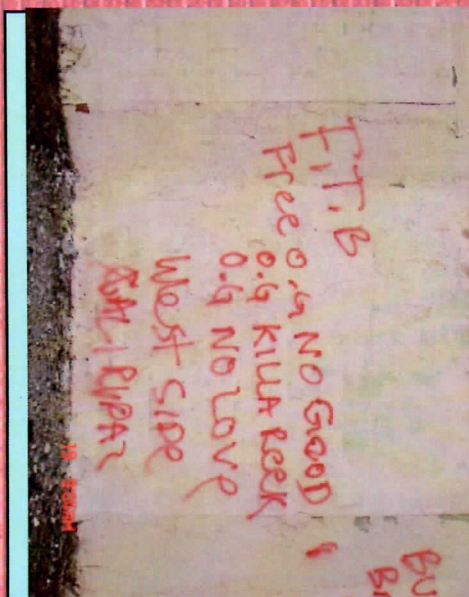 F.T.B
Free O.G NO GOOD
O.G KILLA REEK
O.G NO LOVE
WEST SIDE
BU